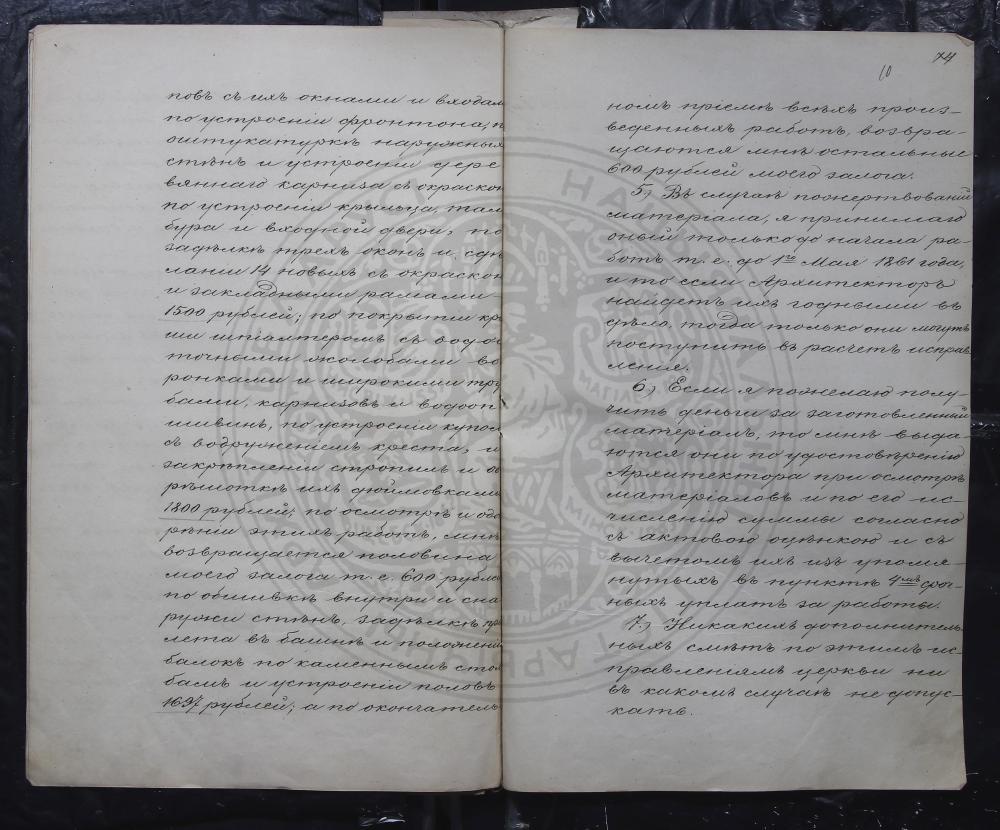 повъ съ ихъ окнами и входам
по устроеніи фронтона, п
оштукатуркѣ наружных
стѣнъ и устроеніи дере
вяннаго карниза съ окраскою
по устроеніи крыльца, там
бура и входной двери, по
задѣлкѣ трехъ оконъ и сдѣ
лании 14 новыхъ съ окраскою
и закладными рамами
1500 рублей; по покрытіи кр
ши шпіалтеромъ съ водос
точными жолобами во
ронками и широкими тру
бами, карнизовъ и водооп
шивинъ, по устроеніи купол
съ водруженіемъ креста, и
закрѣпленіи стропилъ и об
рѣшоткѣ ихъ дюймовками
1800 рублей; по осмотрѣ и одоб
рѣніи этихъ работъ, мнѣ
возвращается половина
моего залога т. е. 600 рубле
по обшивкѣ внутри и сна
ружи стѣнъ, задѣлкѣ про
лета въ башнѣ и положеніи
балокъ по каменнымъ стол
бамъ и устроеніи половъ
1697 рублей; а по окончатель
10
74
номъ пріемѣ всѣхъ произ-
веденныхъ работъ, возвра-
щаются мнѣ остальные
600 рублей моего залога.
5.) Въ случаѣ пожертвованій
матеріала, я принимаю
оный только до начала ра-
ботъ т. е. до 1го Мая 1861 года,
и то если Архитекторъ
найдетъ ихъ годными въ
дѣло, тогда только они могутъ
поступить въ расчетъ исправ
ленія.
6.) Если я пожелаю полу-
чить деньги за заготовленный
матеріалъ, то мнѣ выда-
ются они по удостовѣренію
Архитектора при осмотрѣ
матеріаловъ и по его ис-
численію суммы согласно
съ актовою оцѣнкою и съ
вычетомъ ихъ изъ упомя-
нутыхъ въ пунктѣ 4мъ сроч-
ныхъ уплатъ за работы.
7.) Никакихъ дополнитель-
ныхъ смѣтъ по этимъ ис-
правленіямъ церкви ни
въ какомъ случаѣ не допус-
кать.